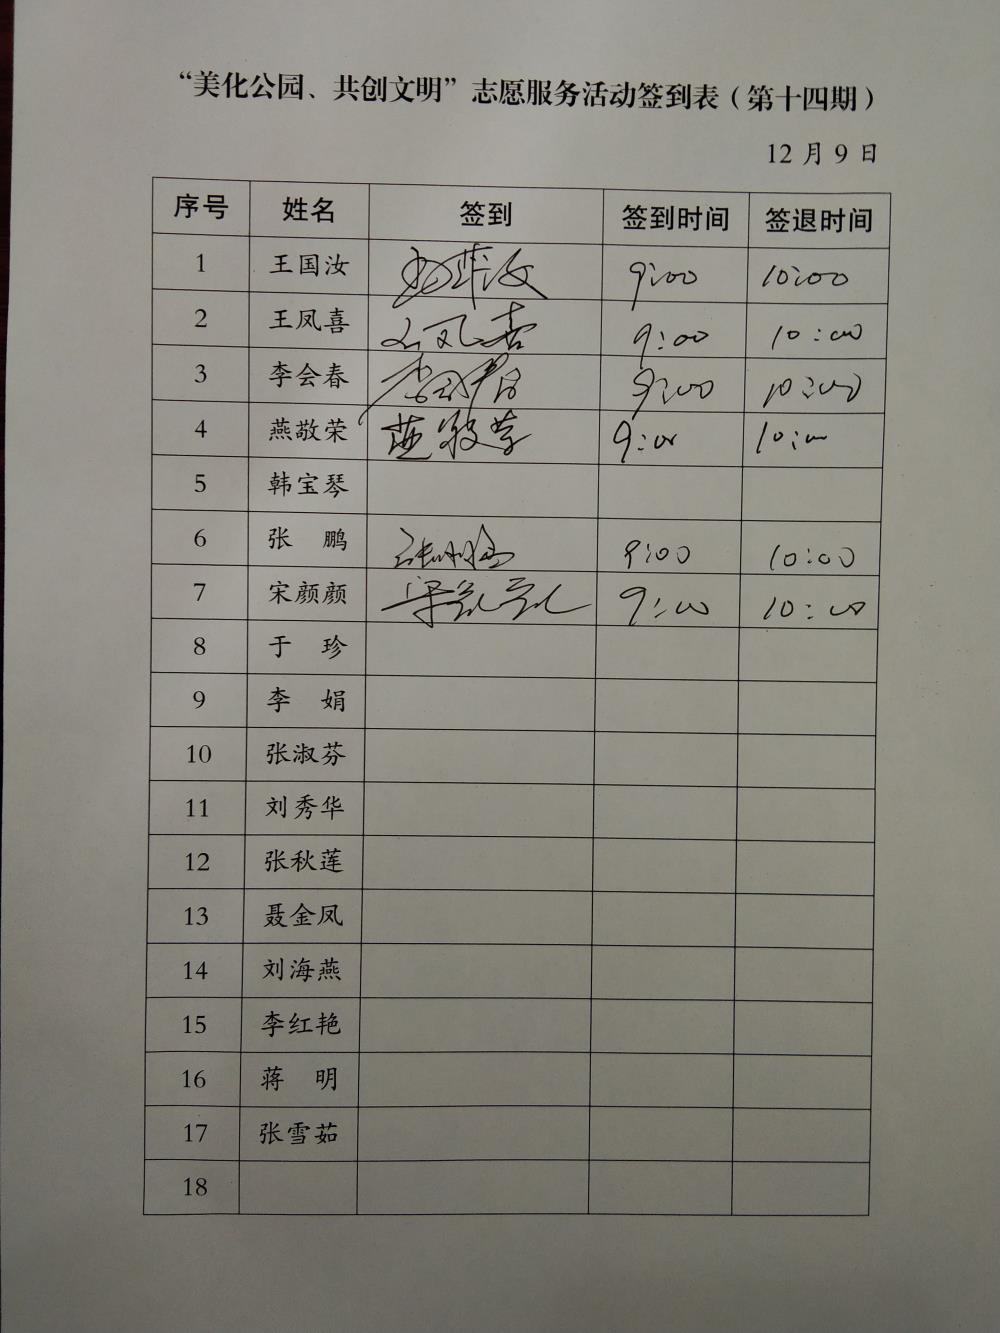 “美化公园、共创文明”志愿服务活动签到表（第十四期）
12月9日
序号 姓名 签到 签到时间 签退时间
1 王国汝 9:00 10:00
2 王凤喜 王凤喜 9:00 10:00
3 李会春 9:00 10:00
4 燕敬荣 燕敬荣 9:00 10:00
5 韩宝琴
6 张 鹏 张鹏 9:00 10:00
7 宋颜颜 9:00 10:00
8 于 珍
9 李 娟
10 张淑芬
11 刘秀华
12 张秋莲
13 聂金凤
14 刘海燕
15 李红艳
16 蒋 明
17 张雪茹
18